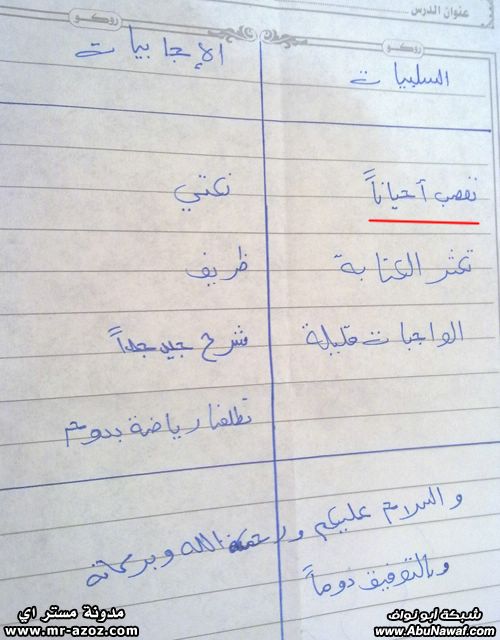 عنوان الدرس
روكو
روكو
السلبيات
الإجابيات
تعصب أحياناً
نكتي
تكثر الكتابة
ظريف
الواجبات قليلة
شرح جيد جداً
تطلعنا رياضة
والسلام عليكم ورحمة الله وبركاته
وبالتوفيق دوماً
شبكة أبو نواف
www.AbuNawaf.com
مدونة مستر اي
www.mr-azoz.com